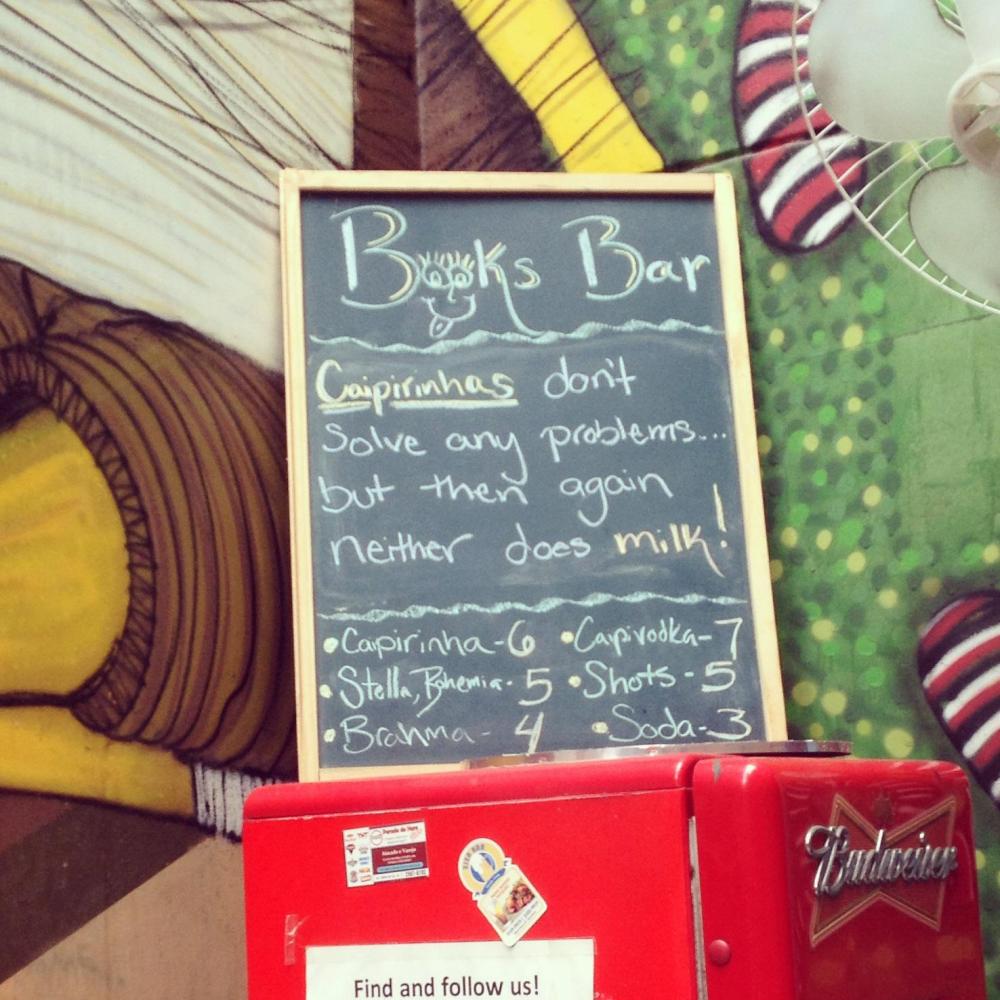 Books Bar
Caipirinhas don't
solve any problems...
but then again
neither does milk!
• Caipirinha - 6 • Capivodka - 7
• Stella, Bohemia - 5 • Shots - 5
• Brahma - 4 • Soda - 3
Budweiser
Find and follow us!